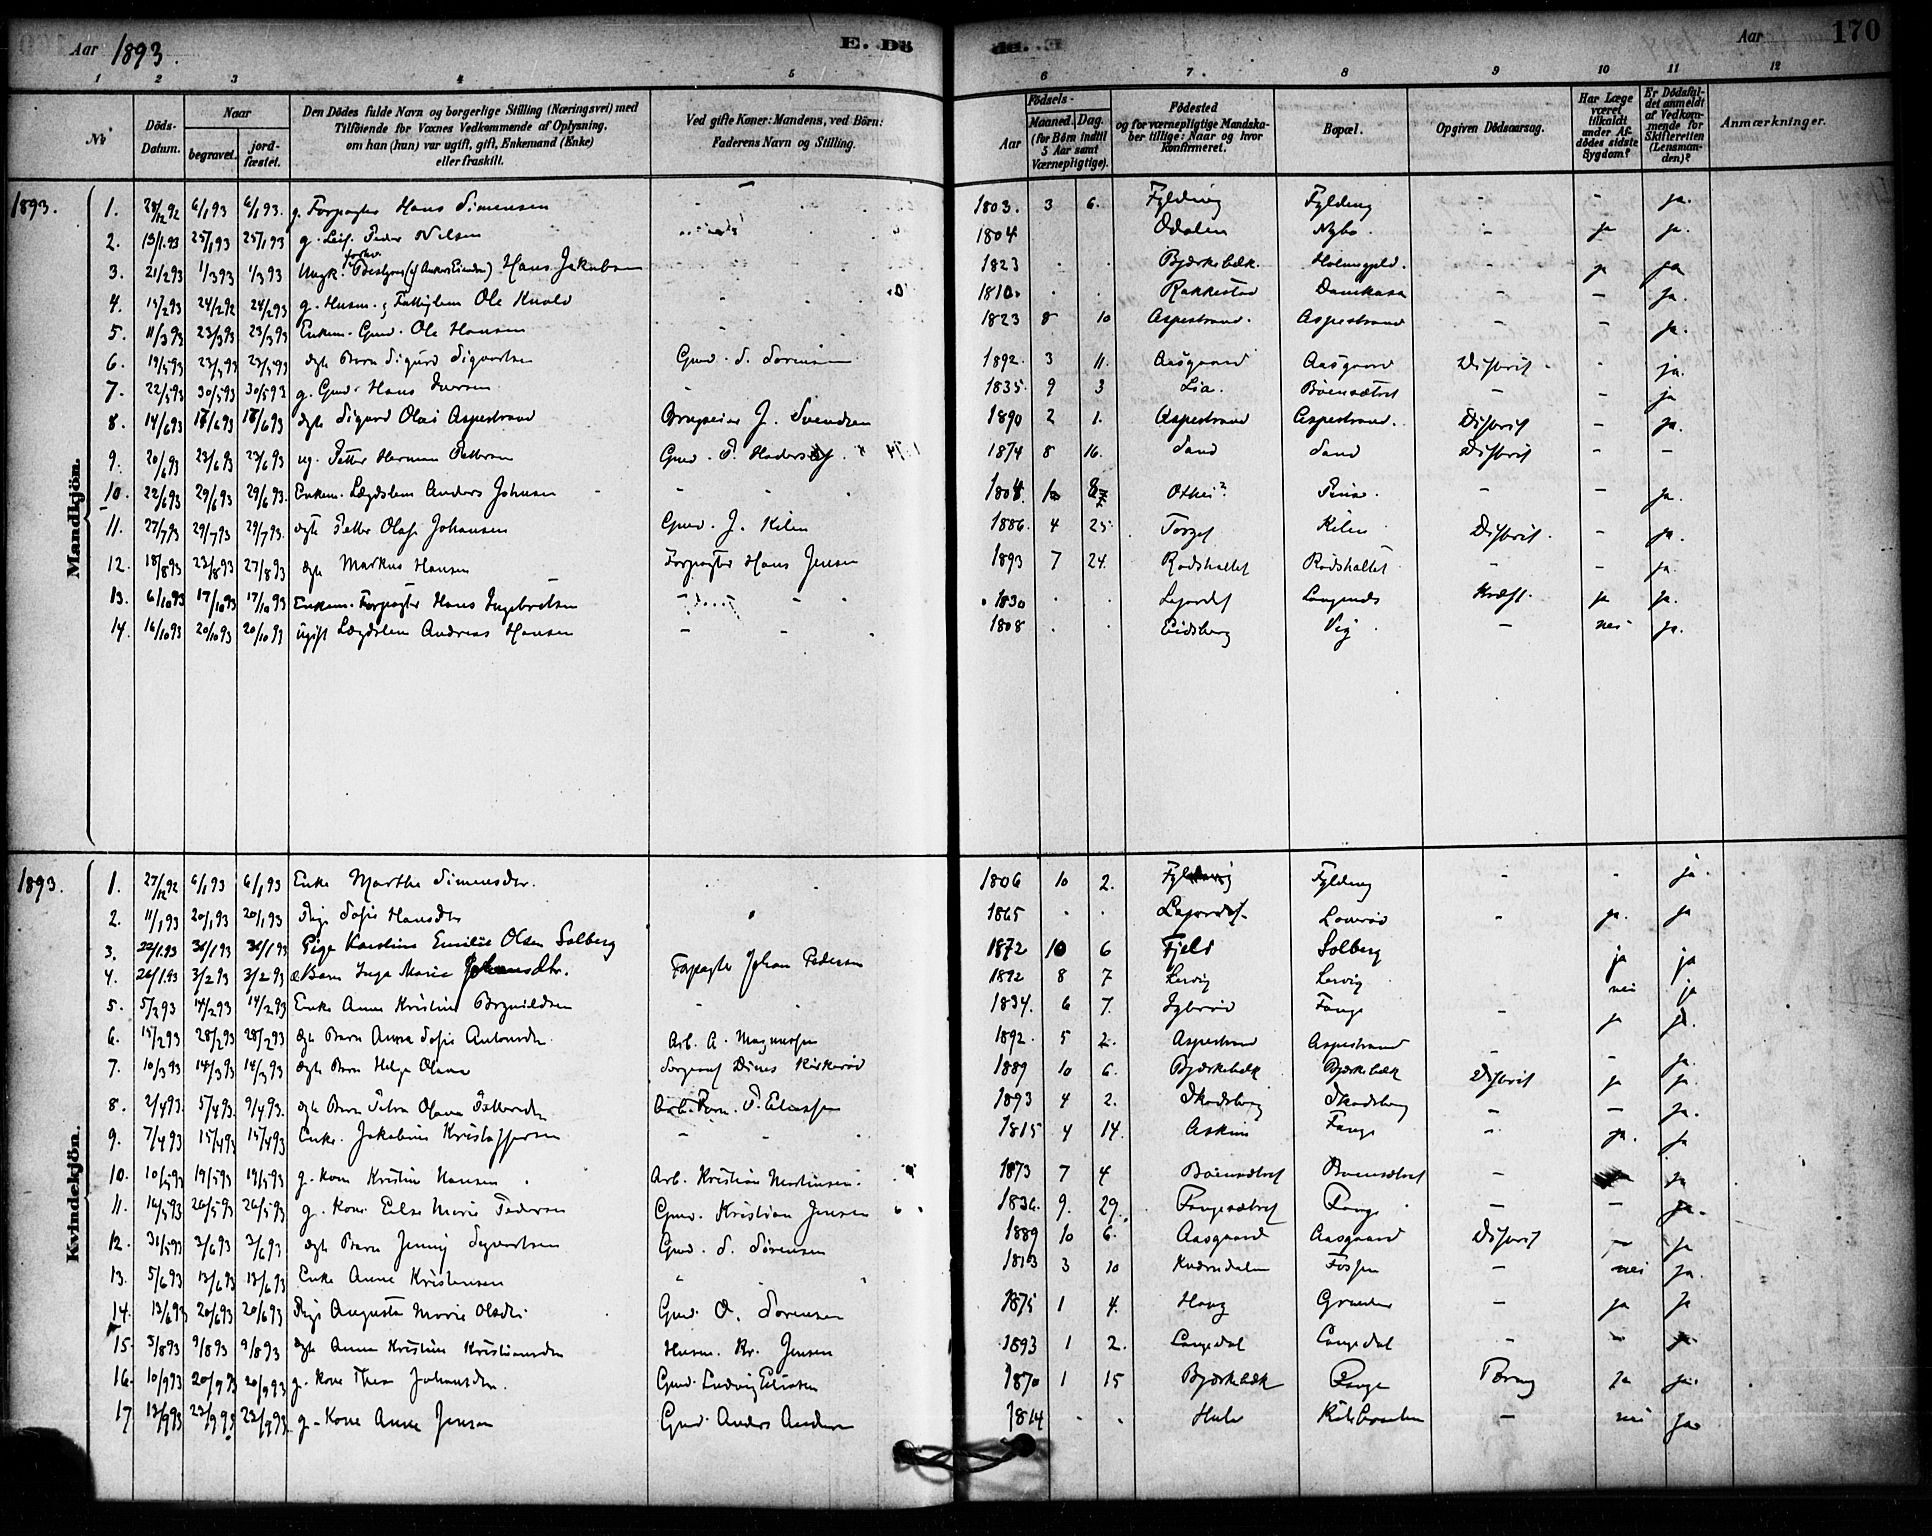 Aar 1893. E. Dö
de. E Aar 170
1 2 3 4 5 6 7 8 9 10 11 12
No Döds-Datum. Naar begravet. jord-fæstet. Den Dödes fulde Navn og borgerlige Stilling (Næringsvei) med Tilföiende for Voxnes Vedkommende af Oplysning, om han (hun) var ugift, gift, Enkemand (Enke) eller fraskilt. Ved gifte Koner: Mandens, ved Börn: Faderens Navn og Stilling. Födsels- Aar Maaned. Dag. (for Börn indtil 5 Aar samt Værnepligtige). Födested og for værnepligtige Mandskaber tillige: Naar og hvor Konfirmeret. Bopæl. Opgiven Dödsaarsag. Har Læge været tilkaldt under Afdödes sidste Sygdom? Er Dödsfaldet anmeldt af Vedkommende for Skifteretten (Lensmanden)? Anmærkninger.
Mandkjön.
1893. 1. 28/12 92 6/1 93 6/1 93. g. Forpagter Hans Simensen 1803. 3 6. Fylding Fylding - - ja.
2. 13/1 93 25/1 93 25/1 93 g. Leif. Peder Nilsen 1804 Odalen Nybo - ja ja.
3. 21/2 93 1/3 93 1/3 93 Ungk. forhv. Hans Jakobsen 1823 Bjørkebæk ja ja
4. 15/2 93 24/2 92 24/2 93 g. Husm. & Fattiglem Ole Knold 1810. Rakkestad Damkasa - - ja.
5. 11/3 93 23/3 93 23/3 93 Enkem. Gmd. Ole Hansen 1823 8 10 Aspestrand. Aspestrand - - ja.
6. 19/5 93 23/5 93 23/5 93 ægte Barn Sigurd Sigvartsen Gmd. S. Sørensen 1892. 3 11. Aasgaard Aasgaard Difterit - ja.
7. 22/5 93 30/5 93 30/5 93 g. Gmd. Hans Iversen - 1835. 9 3 Lia. Bøensætret - - ja
8. 14/6 93 18/6 93 18/6 93 ægte Sigurd Olai Aspestrand Brugseier J. Svendsen 1890 2 1. Aspestrand Aspestrand. Difterit - ja.
9. 20/6 93 23/6 93 23/6 93 ug. Petter Herman Pettersen Gmd. P. 1874 8 16. Sand Sand Difterit - -
10. 22/6 93 29/6 93 29/6 93. Enkem. Lægdslem Anders Johnsen - 1804. 10 - - ja.
11. 27/7 93 29/7 93 29/7 93. ægte Petter Olaf Johansen Gmd. J. Kilen 1886. 4 25. Torget Kilen Difterit. - ja.
12. 18/8 93 23/8 93 27/8 93 ægte Markus Hansen Forpagter Hans Jensen 1893 7 24. Rødshaltet Rødshaltet - - ja.
13. 6/10 93 17/10 93 17/10 93 Enkem. Forpagter Hans Ingebretsen 1830 Langenes Kræft. ja ja.
14. 16/10 93 20/10 93 20/10 93 ugift Lægdslem Andreas Hansen - 1808 Eidsberg Vig - nei ja.
Kvindekjön.
1893. 1. 27/12 92 6/1 93 6/1 93 Enke Marthe Simensdtr. 1806 10 2. Fylding Fylding - - ja.
2. 11/1 93 20/1 93 20/1 93 Pige Sofie Hansdtr 1865 - ja. ja
3. 22/1 93 31/1 93 31/1 93 Pige Karoline Emilie Olsen Solberg 1872 10 6 Fjeld Solberg ja ja
4. 26/1 93 3/2 93 3/2 93 æ Barn Inga Marie Johansdtr. Forpagter Johan Pedersen 1892 8 7 Lervig Lervig nei ja
5. 5/2 93 14/2 93 14/2 93 Enke Anne Kristine Brynildsen - 1834. 6 7. Fange - ja ja.
6. 15/2 93 28/2 93 28/2 93 ægte Barn Anna Sofie Antonsdtr. Arb. A. Magnussen 1892. 5 2. Aspestrand Aspestrand - - ja.
7. 10/3 93 14/3 93 14/3 93 ægte Barn Helga Olava 1889 10 6. Bjørkebæk Bjørkebæk Difterit ja ja.
8. 2/4 93 5/4 93. 9/4 93. ægte Barn Petra Olava Pettersdtr P. Eliassen 1893 4 2. Skodsberg Skodsberg - - ja.
9. 7/4 93 15/4 93 15/4 93 Enke. Jakobine Kristoffersen - 1815 4 14. Askim Fange - ja. ja
10. 10/5 93 19/5 93 19/5 93 g. kone Kristine Hansen Arb. Kristian Martinsen. 1873 7 4 Bøensætret Bøensætret - ja
11. 16/5 93 26/5 93 26/5 93 g. kone Else Marie Pedersen Gmd. Kristian Jensen 1836. 9. 29. Fangesætret Fange - - ja.
12. 31/5 93 3/6 93 3/6 93 ægte Barn Jenny Sigvartsen Gmd. S. Sørensen 1889 10 6. Aasgaard Aasgaard Difterit - ja
13. 5/6 93 13/6 93 13/6 93 Enke Anne Kristensen 1813 3 10 Kværndalen Fossen - nei ja.
14. 13/6 93 20/6 93 20/6 93 Pige Augusta Marie Olsdtr. Gmd. O. Sørensen 1875 1 4. Haug - ja ja
15. 3/8 93 9/8 93 9/8 93 ægte Anna Kristine Kristiansdtr Husm. Kr. Jensen 1893 1 2. Langedal Langedal - - ja
16. 10/9 93 20/9 93 20/9 93 g. kone Thea Johansdtr. Gmd. Ludvig Eliassen 1870 1 15 Bjørkebæk Fange Tæring ja ja.
17 13/9 93 22/9 93. 22/9 93. g. Kone Anne Jensen Gmd. Anders Andersen 1814 - nei ja.